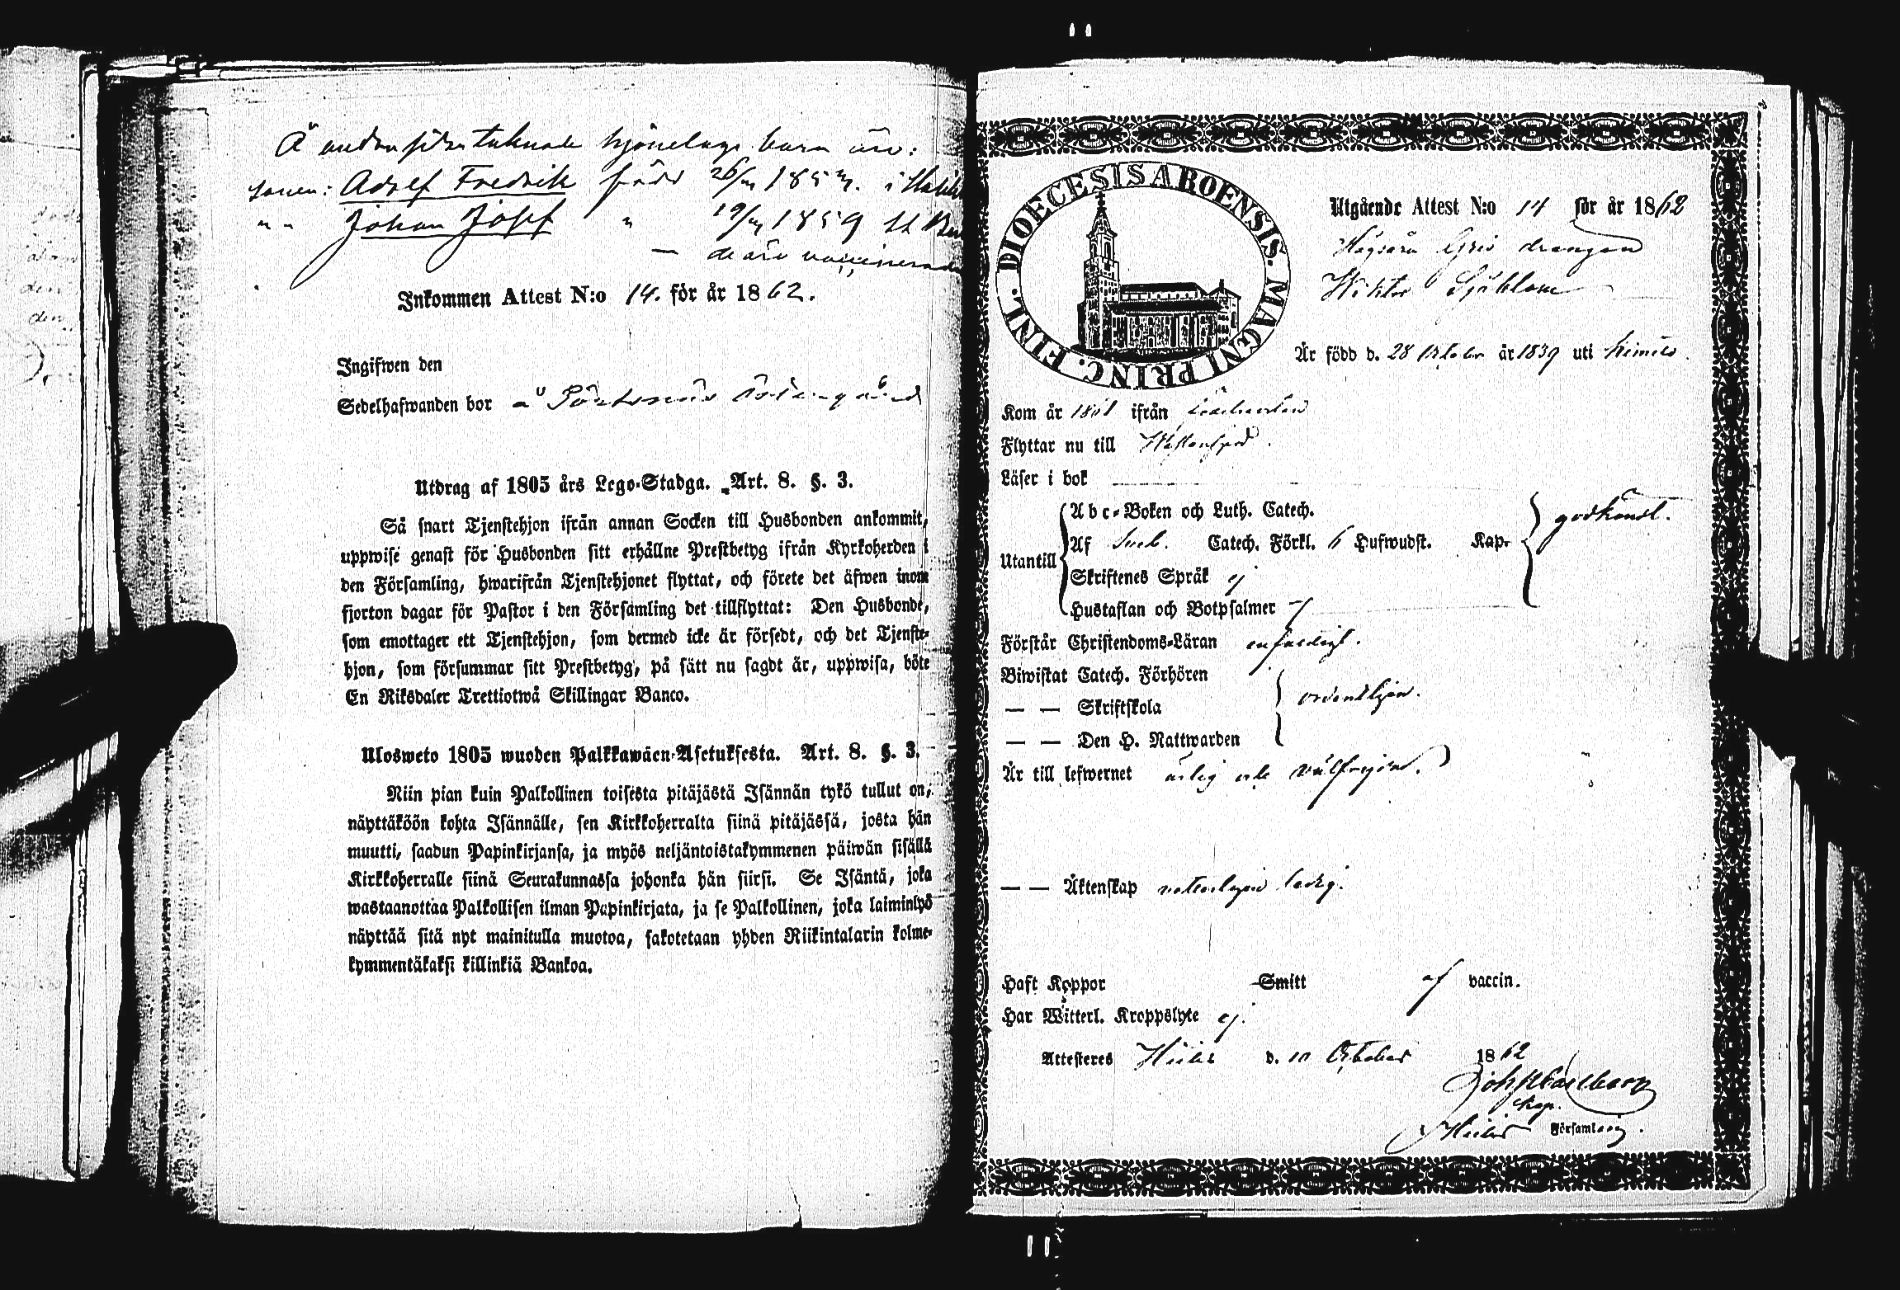 Å andra sidan tecknade hjonelags barn äro:
sonen: Adolf Fredrik född 26/ 185
" " Johan Josef " 19/ 1859
— de äro vaccinerade
Inkommen Attest N:o 14. för år 1862.
Ingifwen den
Sedelhafwanden bor å
Utdrag af 1805 års Lego-Stadga. Art. 8. §. 3.
Så snart Tjenstehjon ifrån annan Socken till Husbonden ankommit,
uppwise genast för Husbonden sitt erhållne Prestbetyg ifrån Kyrkoherden i
den Församling, hwarifrån Tjenstehjonet flyttat, och förete det äfwen inom
fjorton dagar för Pastor i den Församling det tillflyttat: Den Husbonde,
som emottager ett Tjenstehjon, som dermed icke är försedt, och det Tjenste-
hjon, som försummar sitt Prestbetyg, på sätt nu sagdt är, uppwisa, böte
En Riksdaler Trettiotwå Skillingar Banco.
Ulosweto 1805 wuoden Palkkawäen-Asetuksesta. Art. 8. §. 3.
Niin pian kuin Palkollinen toisesta pitäjästä Isännän tykö tullut on,
näyttäköön kohta Isännälle, sen Kirkkoherralta siinä pitäjässä, josta hän
muutti, saadun Papinkirjansa, ja myös neljäntoistakymmenen päiwän sisällä
Kirkkoherralle siinä Seurakunnassa johonka hän siirsi. Se Isäntä, joka
wastaanottaa Palkollisen ilman Papinkirjata, ja se Palkollinen, joka laiminlyö
näyttää sitä nyt mainitulla muotoa, sakotetaan yhden Riikintalarin kolme-
kymmentäkaksi killinkiä Bankoa.
DIOECESIS ABOENSIS. MAGNI PRINC. FINL.
Utgående Attest N:o 14 för år 1862
drengen
Wiktor Sjöblom
Är född d. 28 October år 1839 uti Kimito.
Kom år 1861 ifrån
Flyttar nu till
Läser i bok
Utantill
Abc-Boken och Luth. Catech.
Af Sveb. Catech. Förkl. 6 Hufwudst. Kap. godkändt.
Skriftenes Språk ej
Hustaflan och Botpsalmer
Förstår Christendoms-Läran enfaldigt.
Biwistat Catech. Förhören
— — Skriftskola ordentligen.
— — Den H. Nattwarden
Är till lefwernet ärlig och välfrejdad.
— — Äktenskap veterligen ledig.
Haft Koppor Smitt af vaccin.
Har Witterl. Kroppslyte ej.
Attesteres Hitis d. 10 October 1862
Kap.
Hitis Församling.